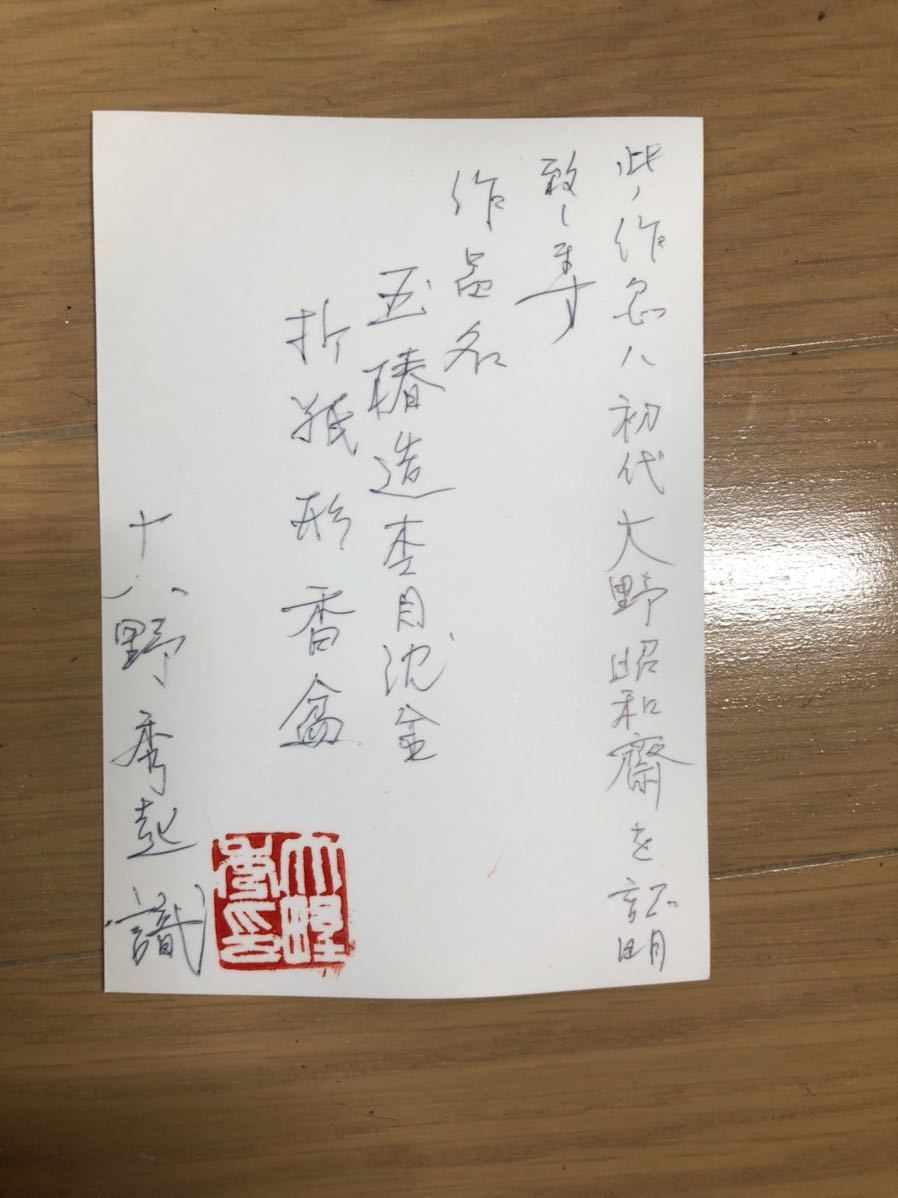 此ノ作品ハ初代大野昭和齋を証明
致します
作品名
玉椿造杢目沈金
折紙形香盒
大野秀起識